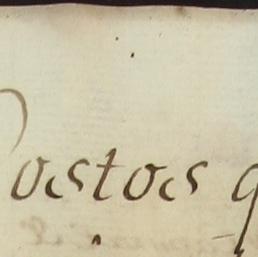 Costos q